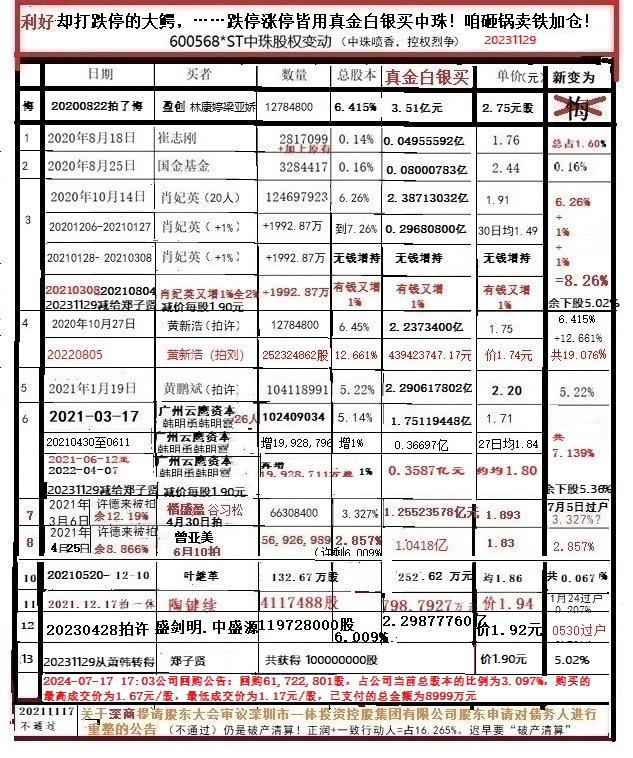 利好却打跌停的大鳄，……跌停涨停皆用真金白银买中珠！咱砸锅卖铁加仓！
600568*ST中珠股权变动 （中珠喷香，控权烈争） 20231129
日期 买者 数量 总股本 真金白银买 单价(元) 新变为
悔 20200822拍了悔 盈创 林康婷梁亚娇 12784800 6.415% 3.51亿元 2.75元股 悔
1 2020年8月18日 崔志刚 2817099 0.14% 0.04955592亿 1.76 总占1.60%
+加上原有
2 2020年8月25日 国金基金 3284417 0.16% 0.08000783亿 2.44 0.16%
3 2020年10月14日 肖妃英(20人) 124697923 6.26% 2.38713032亿 1.91 6.26%
+
20201206-20210127 肖妃英（.+1%） +1992.87万 到7.26% 0.29680800亿 30日均1.49 1%
+
20210128- 20210308 肖妃英（.+1%） +1992.87万 无钱增持 无钱增持 无钱增持 1%
2021030820210804 肖妃英又增1%全2% +1992.87万 有钱又增1% 有钱又增1% 有钱又增1% =8.26%
20231129减给郑子贤 减价每股1.90元 余下股5.02%
4 2020年10月27日 黄新浩（拍许） 12784800 6.45% 2.2373400亿 1.75 6.415%
+12.661%
20220805 黄新浩（拍刘） 252324862股 12.661% 439423747.17元 价1.74元 共19.076%
5 2021年1月19日 黄鹏斌（拍许） 104118991 5.22% 2.290617802亿 2.20 5.22%
6 2021-03-17 广州云鹰资本 韩明勇韩明霞26人 102409034 5.14% 1.75119448亿 1.71
20210430至0611 广州云鹰资本 韩明勇韩明霞 增19,928,796 增1% 0.36697亿 27日均1.84 共7.139%
2021-06-12至2022-04-07 广州云鹰资本 韩明勇韩明霞 再增19,928,711万股 1% 0.3587亿元 约均1.80
20231129减给郑子贤 减价每股1.90元 余下股5.36%
7 2021年3月6日 许德来被扣余12.19% 楷盛盈 谷习松 4月30日拍 66308400 3.327% 1.25523578亿元 1.893 7月5日过户 3.327%?
8 2021年4月25日 许德来被扣余8.866% 曾亚美 6月10拍 56,926,989 2.857% 1.0418亿 1.83 2.857%
(许剩6.009%
10 20210520- 12-10 叶继革 132.67万股 252.62 万元 均1.86 共0.067%
11 2021.12.17拍一体 陶键续 4117488股 798.7927万元 价1.94 1月24过户 0.207%
12 20230428拍许 盛剑明.中盛源 119728000股 6.009% 2.29877760亿 价1.92元 0530过户
13 20231129从萧韩转得 郑子贤 共获得 100000000股 价1.90元 5.02%
2024-07-17 17:03公司回购公告：回购61,722,801股，占公司当前总股本的比例为3.097%，购买的
最高成交价为1.67元/股，最低成交价为1.17元/股，已支付的总金额为8999万元
20211117 不通过 关于深商提请股东大会审议深圳市一体投资控股集团有限公司股东申请对债务人进行
重整的公告 (不通过) 仍是破产清算！正润+一致行动人=占16.265%。迟早要“破产清算”